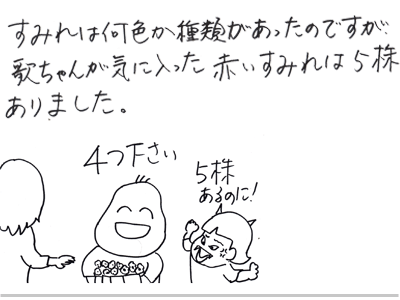 すみれは何色か種類があったのですが
歌ちゃんが気に入った赤いすみれは5株
ありました。
4つ下さい
5株
あるのに!